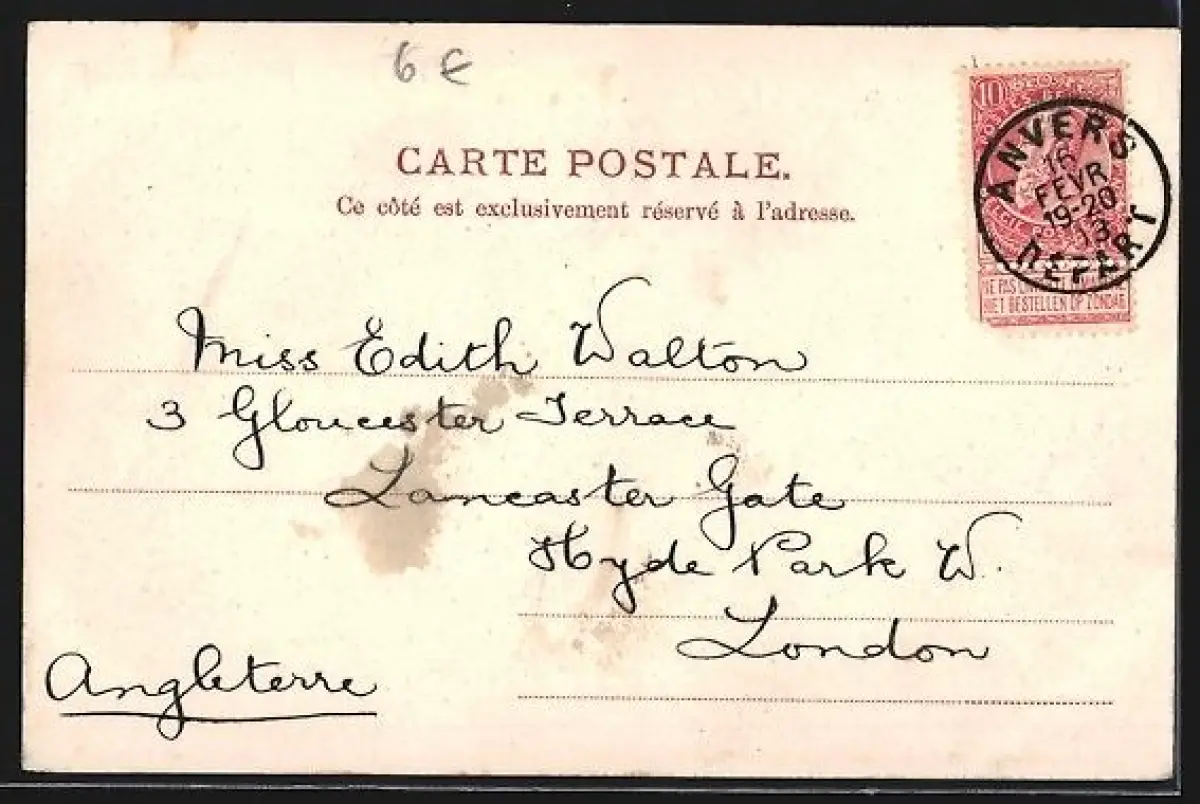 6 €
CARTE POSTALE.
Ce côté est exclusivement réservé à l'adresse.
10
ANVERS
16
FEVR
19-20
13
DEPART
NE PAS
NIET BESTELLEN OP ZONDAG
Miss Edith Walton
3 Gloucester Terrace
Lancaster Gate
Hyde Park W.
London
Angleterre